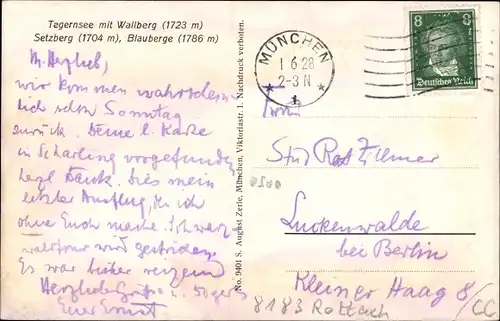 Tegernsee mit Wallberg (1723 m)
Setzberg (1704 m), Blauberge (1786 m)
M. Herzlieb,
wir kommen
schon Sonntag
zurück. Deine l. Karte
in Scharling vorgefunden
herzl Dank. Dies mein
letzter Ausflug, den ich
ohne Euch mache.
wird gestrichen
Es war bisher reizend
Herzliche Grüße u.
Euer Ernst
No. 9401 S. August Zerle, München, Viktoriastr. 1. Nachdruck verboten.
MÜNCHEN
1 6 28
2-3 N
8 8
Deutsches Reich
Stud Rat Zillmer
Luckenwalde
bei Berlin
Kleiner Haag 8/
8183 Rottach